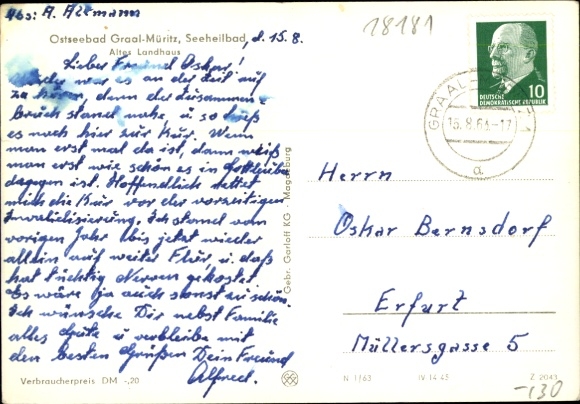 Abs: A. Altmann
Ostseebad Graal-Müritz, Seeheilbad, d. 15.8.
Altes Landhaus
Lieber Freund Oskar!
war es an der Zeit auf
zu hören, denn der Zusammen-
bruch stand nahe, u. so hieß
es noch hier zur Kur. Wenn
man erst mal da ist, dann weiß
man erst wie schön es in Gottleuba
dagegen ist. Hoffentlich rettet
mich die Kur vor der vorzeitigen
Invalidisierung. Ich stand vom
vorigen Jahr bis jetzt wieder
allein auf weiter Flur u. daß
hat tüchtig Nerven gekostet.
Es wäre ja auch sonst zu schön.
Ich wünsche Dir nebst Familie
alles Gute u. verbleibe mit
den besten Grüßen Dein Freund
Alfred.
Verbraucherpreis DM -,20
Gebr. Garloff KG - Magdeburg
18181
10
DEUTSCHE
DEMOKRATISCHE REPUBLIK
GRAAL-
15.8.63-17
a
Herrn
Oskar Bernsdorf
Erfurt
Müllersgasse 5
N 1/63 IV-14-45 Z 2043
-130